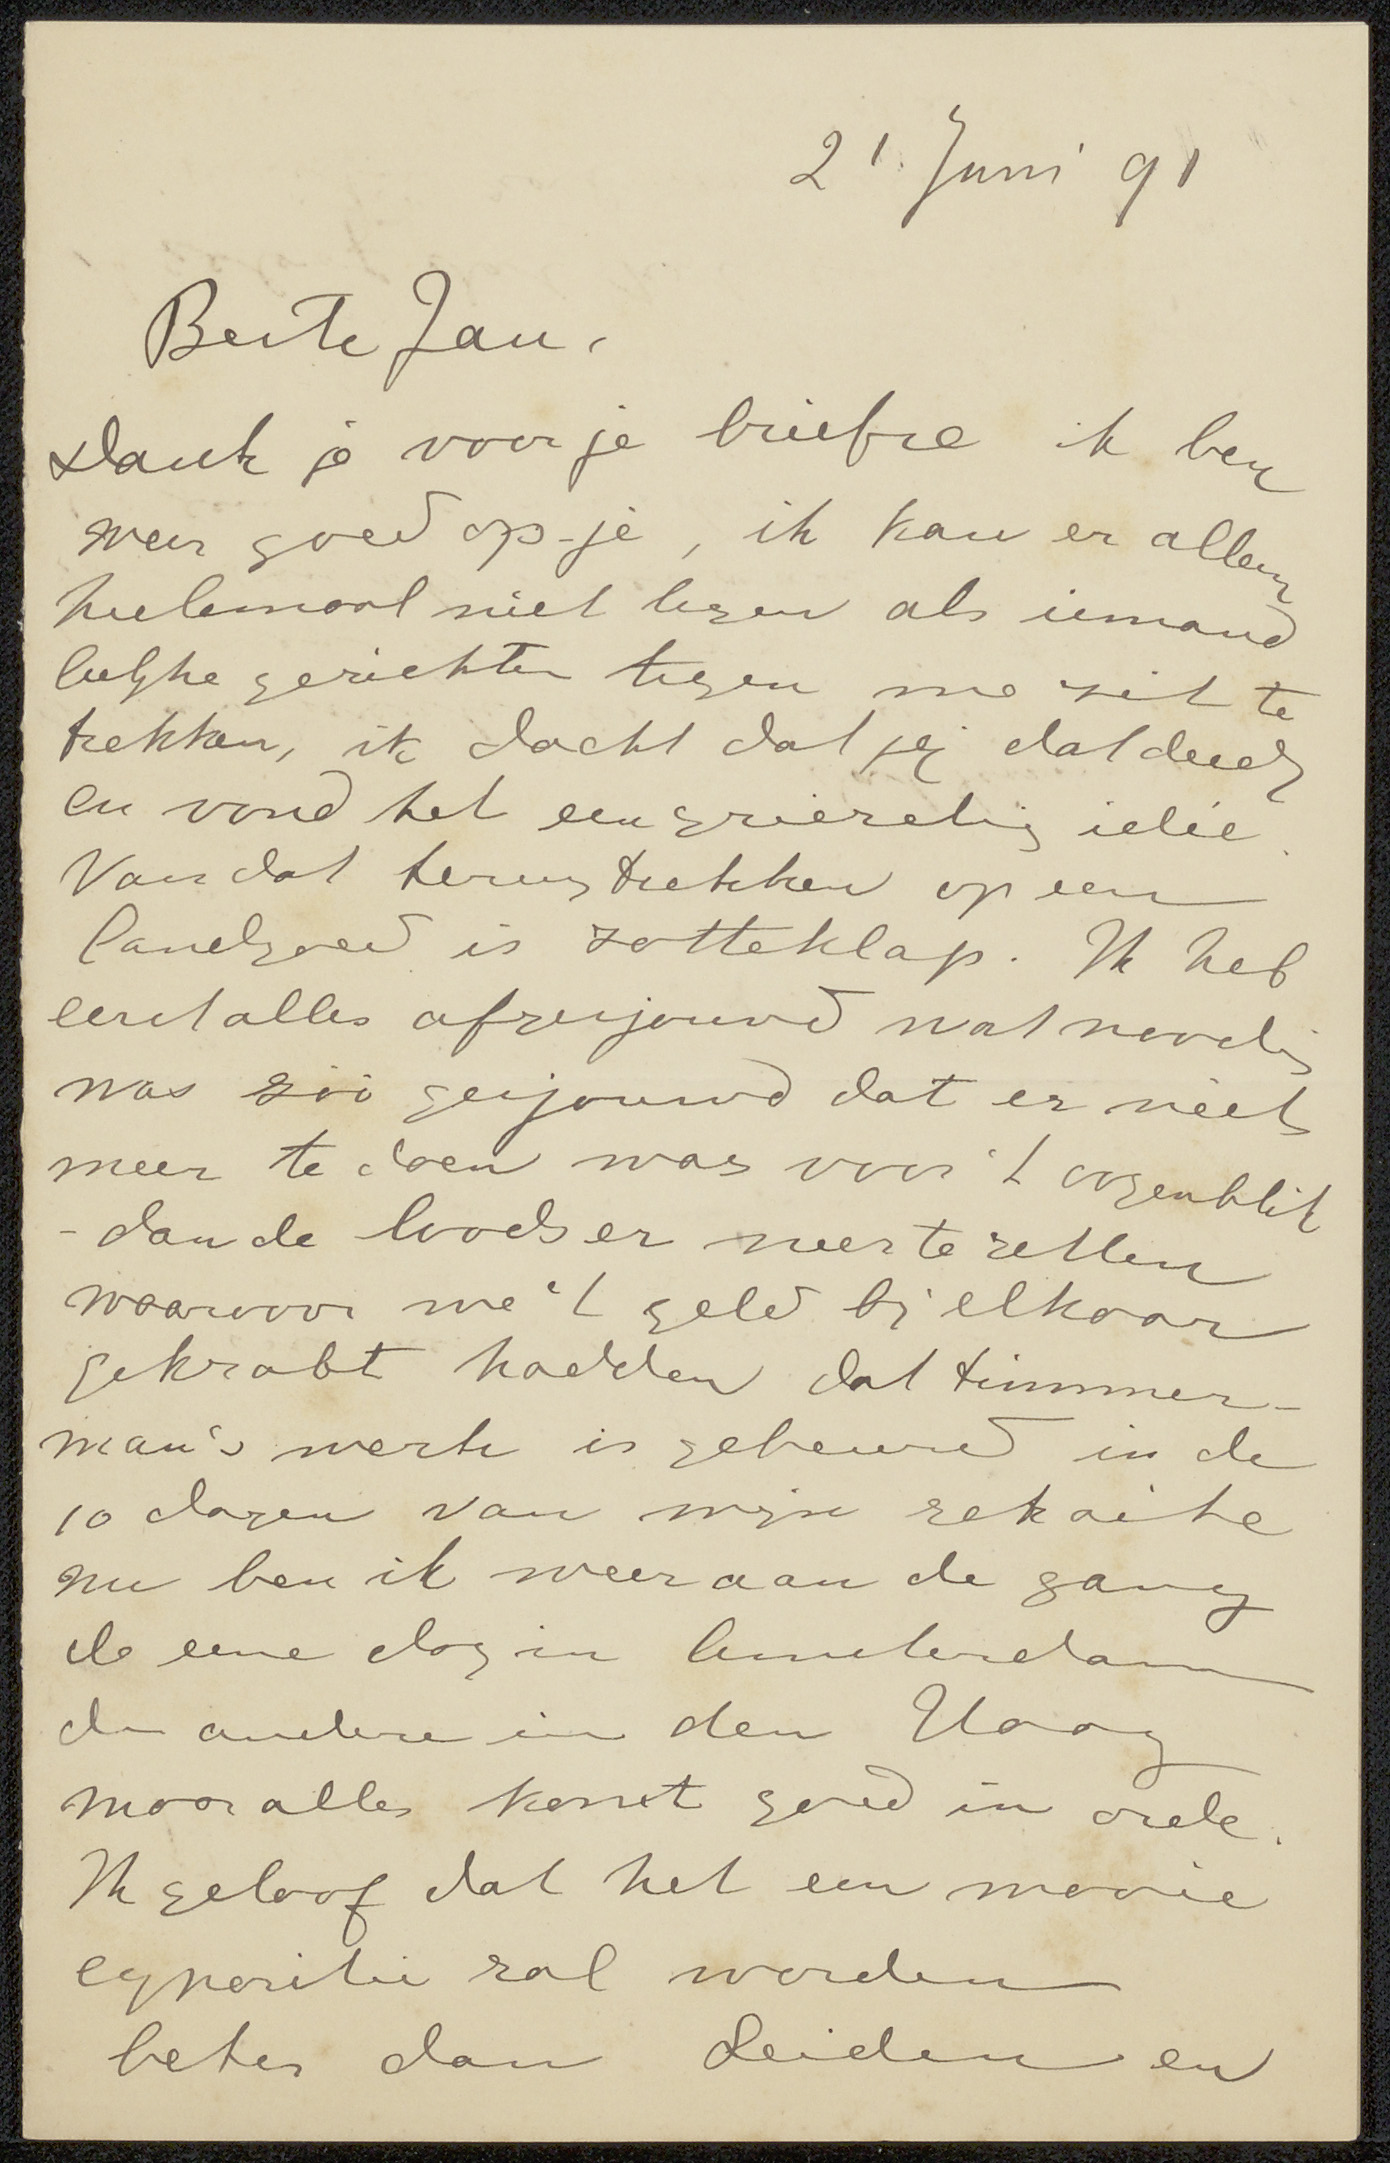 21 Juni 91
Beste Jan,
Dank je voor je briefje ik ben
weer goed op-je, ik kan er alleen
heelemaal niet tegen als iemand
leelijke gezichten tegen me zit te
trekken, ik dacht dat jij dat deed
en vond het een griezelig idée.
Van dat terugtrekken op een
landgoed is zotteklap. Ik heb
eerst alles afgesjouwd wat noodig
was zóó gesjouwd dat er niets
meer te doen was voor 't oogenblik
- dan de loods er neer te zetten
waarvoor we 't geld bij elkaar
gekrabt hadden dat timmer-
man's werk is gebeurd in de
10 dagen van mijn
nu ben ik weer aan de gang
de eene dag in Amsterdam
de andere in den Haag
maar alles komt goed in orde.
Ik geloof dat het een mooie
expositie zal worden
beter dan Leiden en